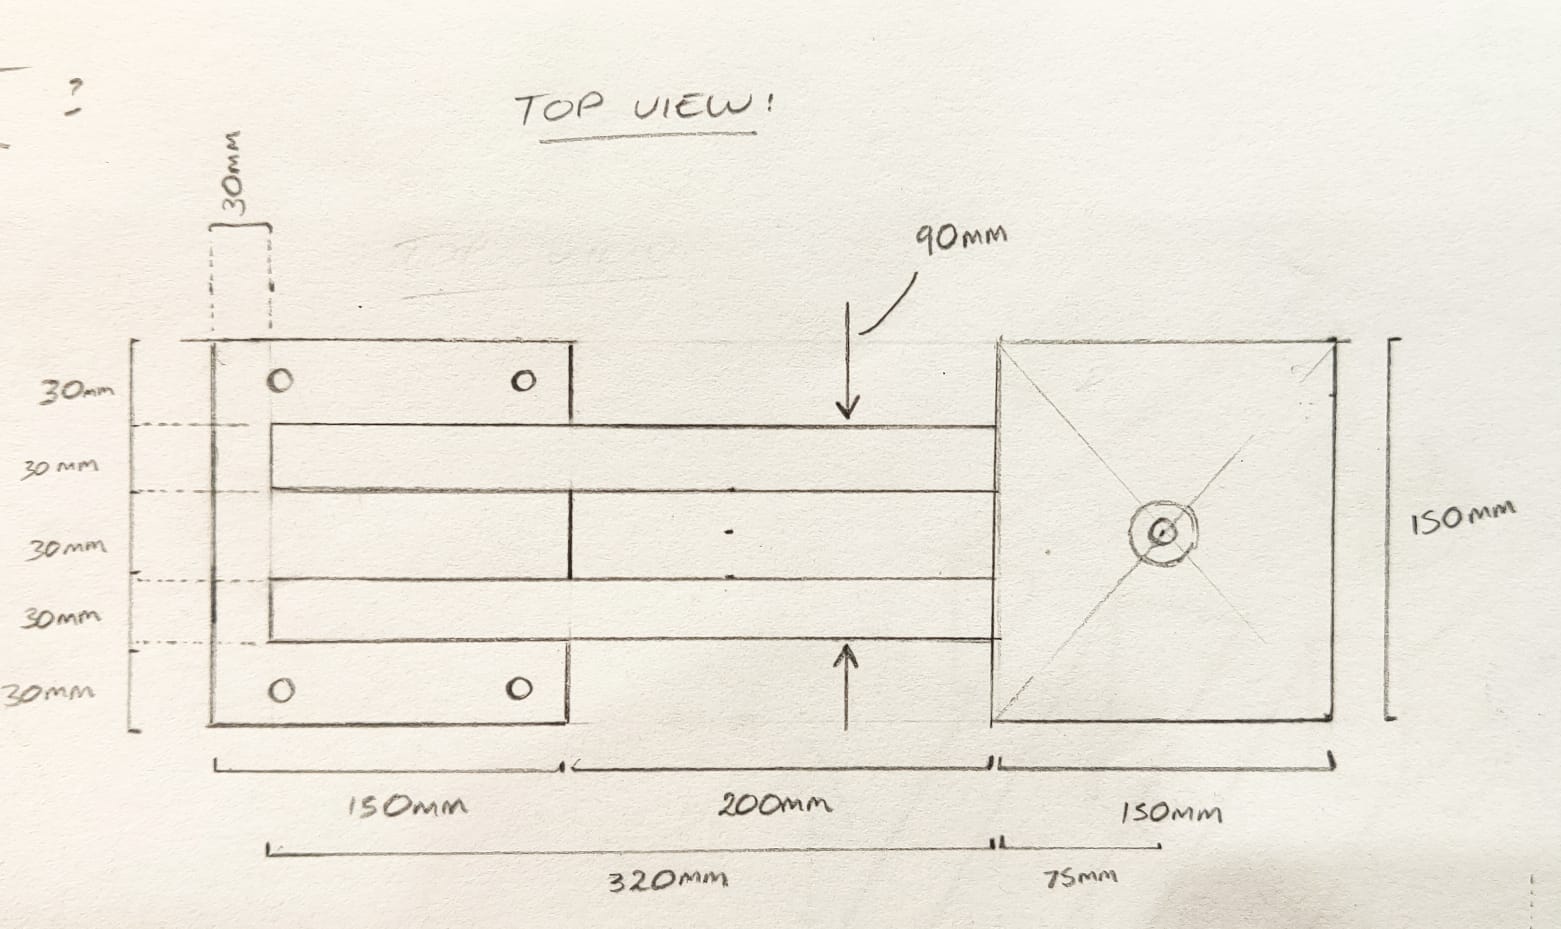 ?
TOP VIEW!
30mm
90mm
30mm
30mm
30mm
30mm
30mm
150mm
150mm
200mm
150mm
320mm
75mm